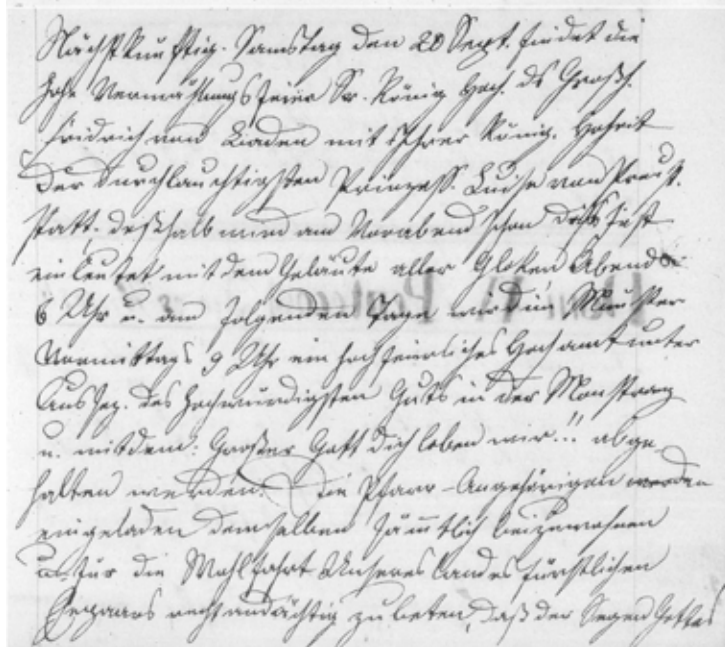 Nächstkünftig. Samstag den 20 Sept. findet die
hohe Vermählungsfeier Sr. König. Hoh. des Großh.
Fridrich von Baden mit Ihrer König. Hoheit
der durchlauchtigsten Prinzess. Luise von Preuß.
statt; deßhalb wird am Vorabend schon dieß Fest
eingeleutet mit dem Geläute aller Gloken Abends
6 Uhr u. am folgenden Tage wird im Münster
Vormittags 9 Uhr ein hochfeierliches Hochamt unter
Aussez. des hochwürdigsten Guts in der Monstranz
u. mit dem: Großer Gott dich loben wir!! abge-
halten werden. Die Pfarr-Angehörigen werden
eingeladen demselben sämtlich beizuwohnen
u. für die Wohlfahrt Unseres Landesfürstlichen
Ehepaars recht andächtig zu beten, daß der Segen Gottes